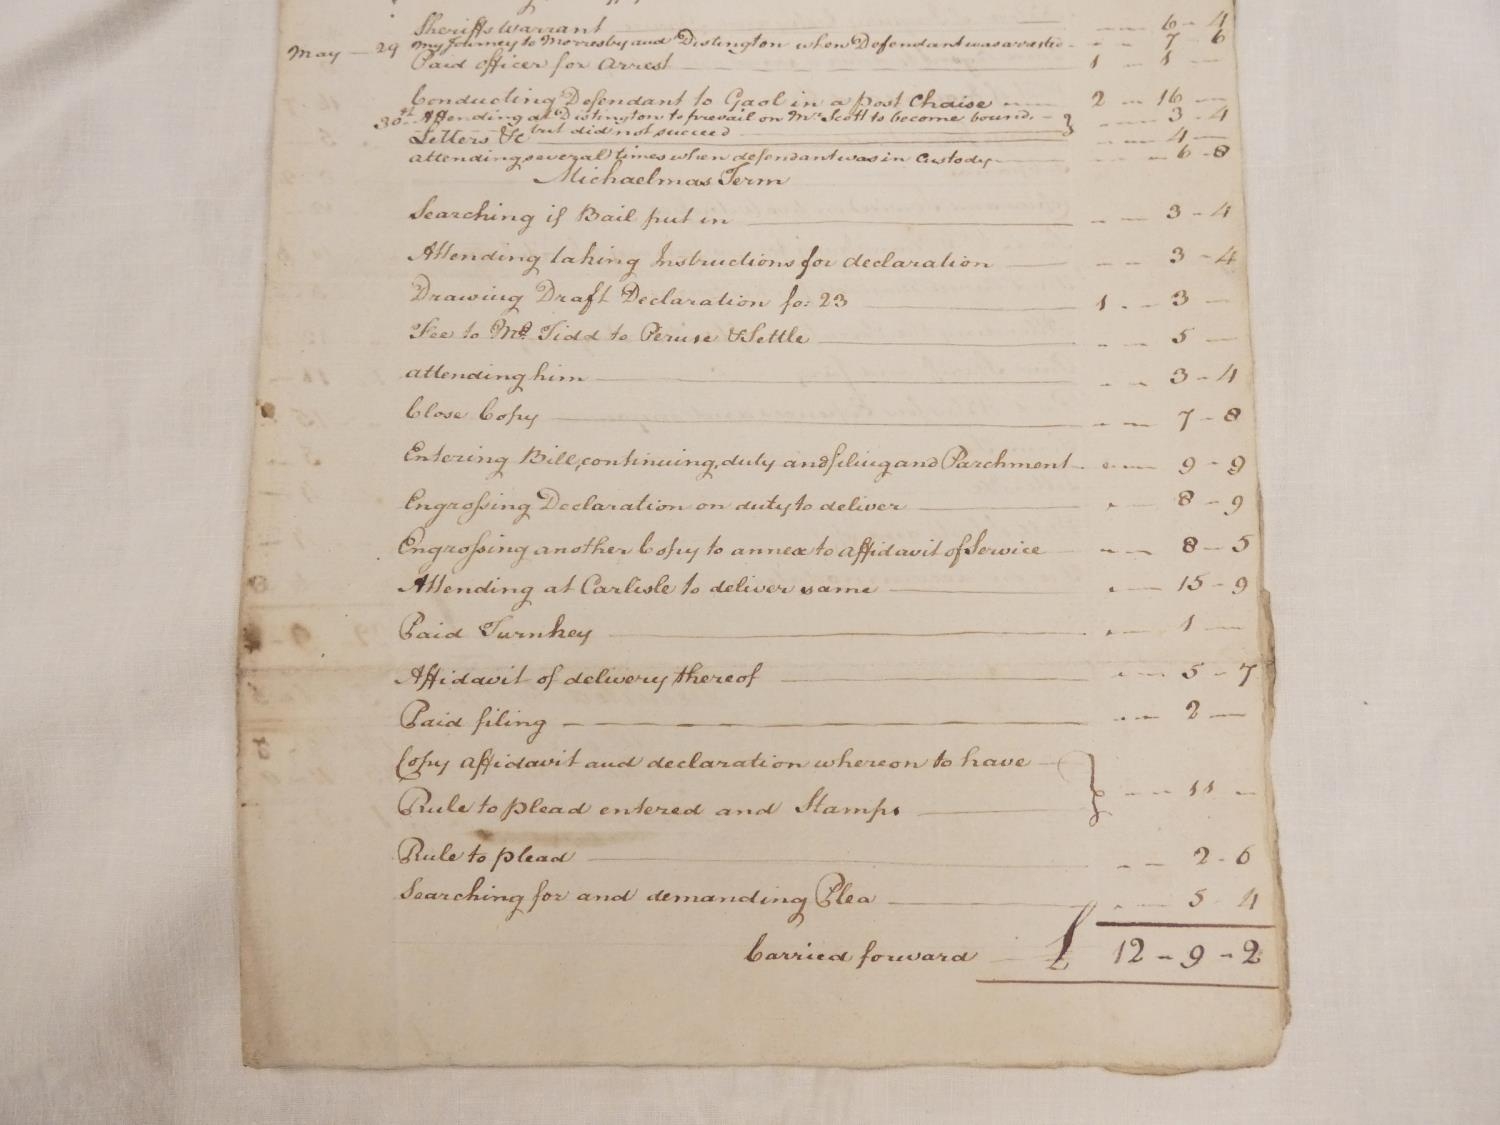 Sheriffs Warrant — 6 - 4
May — 29 My Journey to Morresby and Distington when Defendant was arrested - 7 - 6
Paid officer for Arrest — 1 - 1 —
Conducting Defendant to Gaol in a post Chaise — 2 - 16 —
30th Attending at Distington to prevail on Mr Scott to become bound. - 3 - 4
but did not succeed
Letters &c — 4 —
attending several times when defendant was in Custody — 6 - 8
Michaelmas Term
Searching if Bail put in — 3 - 4
Attending taking Instructions for declaration — 3 - 4
Drawing Draft Declaration fo: 23 — 1 - 3 —
Fee to Mr Tidd to Peruse & Settle — 5 —
attending him — 3 - 4
Close Copy — 7 - 8
Entering Bill, continuing, duty and filing and Parchment - 9 - 9
Engrossing Declaration on duty to deliver — 8 - 9
Engrossing another Copy to annex to affidavit of Service — 8 - 5
Attending at Carlisle to deliver same — 15 - 9
Paid Turnkey — 1 —
Affidavit of delivery thereof — 5 - 7
Paid filing — 2 —
Copy affidavit and declaration whereon to have
Rule to plead entered and Stamps — 11 -
Rule to plead — 2 - 6
Searching for and demanding Plea — 5 - 4
Carried forward £ 12 - 9 - 2